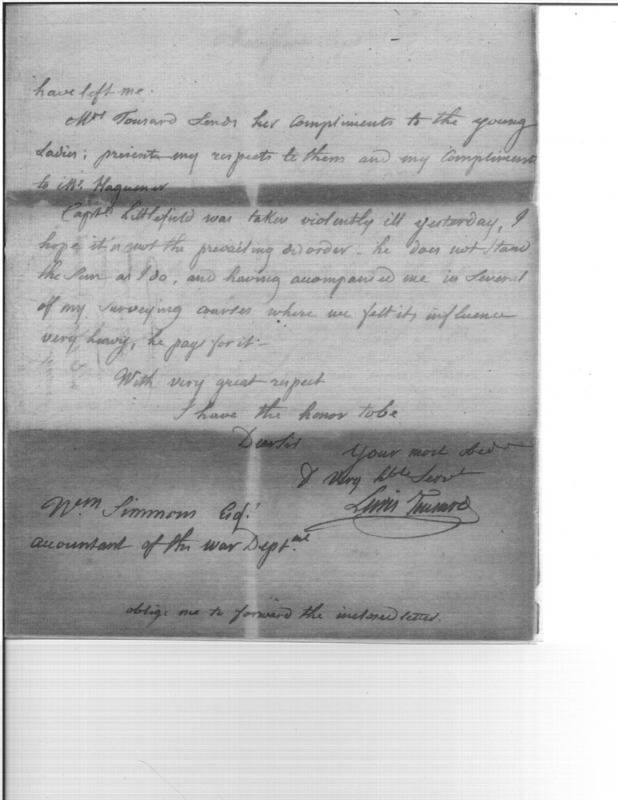 have left me.
Mrs Tousard Sends her Compliments to the young
Ladies; presents my respects to them and my Compliments
to Mr. Haguener
Captn. Littlefield was taken violently ill yesterday, I
hope it is not the prevailing disorder - he does not stand
the Sun as I do, and having accompanied me in Several
of my surveying courses where we felt its influence
very heavy, he pay for it -
With very great respect
I have the honor to be
Dear Sir
Your most obedt
& very hble Servt
Lewis Tousard
Wm Simmons Esqr
accountant of the War Deptment.
oblige me to forward the inclosed letter.